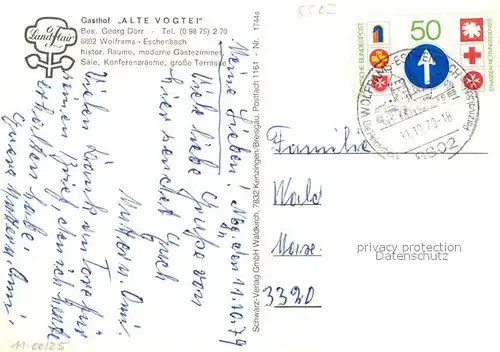 Gasthof „ALTE VOGTEI"
Bes. Georg Dörr - Tel. (0 98 75) 2 70
8802 Wolframs - Eschenbach
histor. Räume, moderne Gästezimmer,
Säle, Konferenzräume, große Terrasse
Land-Flair
Schwarz-Verlag GmbH Waldkirch, 7832 Kenzingen/Breisgau, Postfach 1151 - Nr. 1744s
Meine Lieben! den 11.10.79
Viele liebe Grüße von
hier sendet Euch
Mutter u. Omi.
Vielen Dank an Tore für
seinen Brief den ich heute
erhalten habe.
Eure Mutter u. Omi.
Familie
Wald
3320
50
DEUTSCHE BUNDESPOST
STRASSEN RETTUNGSDIENSTE
WOLFRAMS-ESCHENBACH
11.10.79-18
8802
privacy protection
Datenschutz